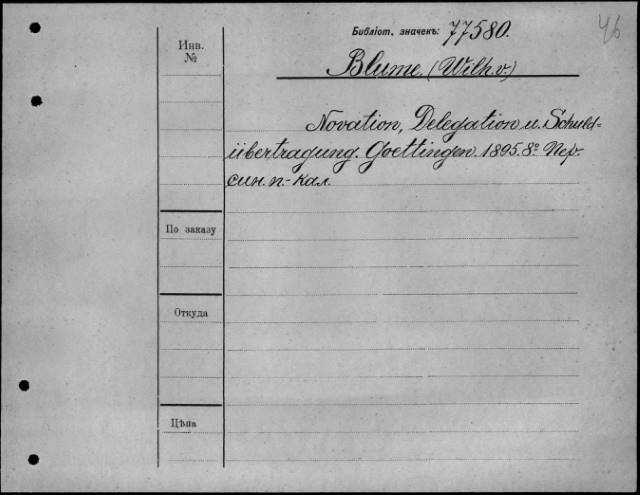 46
Библіот. значекъ: 77580.
Инв. №
Blume (Wilh. v.)
Novation, Delegation u. Schuld=
übertragung. Goettingen. 1895. 8º Пер.
син. п.-кал.
По заказу
Откуда
Цѣна